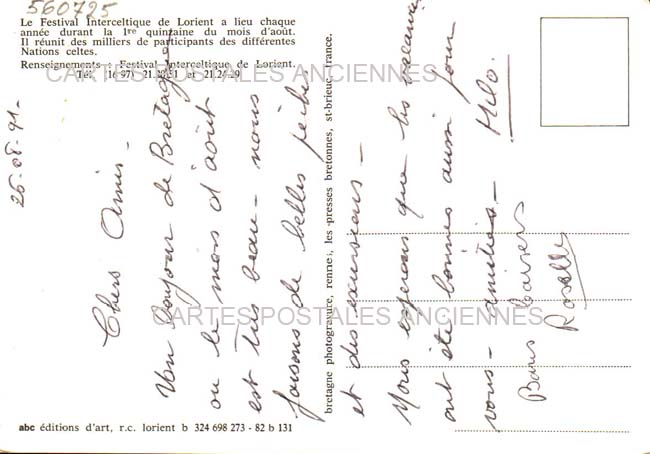 560725
Le Festival Interceltique de Lorient a lieu chaque
année durant la 1re quinzaine du mois d'août.
Il réunit des milliers de participants des différentes
Nations celtes.
Renseignements : Festival Interceltique de Lorient.
Tél. (16-97) 21.24.29
CARTES POSTALES ANCIENNES
26-08-91-
Chers Amis -
Un bonjour de Bretagne
ou le mois d'août
est très beau - nous
faisons de belles pêches
et des excursions -
Nous espérons que les vacances
ont été bonnes aussi pour
vous - amitiés - Milo.
Bons baisers
Roselle
bretagne photogravure, rennes, les presses bretonnes, st-brieuc, france.
CARTES POSTALES ANCIENNES
abc éditions d'art, r.c. lorient b 324 698 273 - 82 b 131